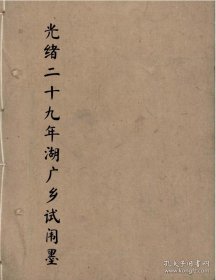 光绪二十九年湖广乡试闱墨
孔夫子旧书网